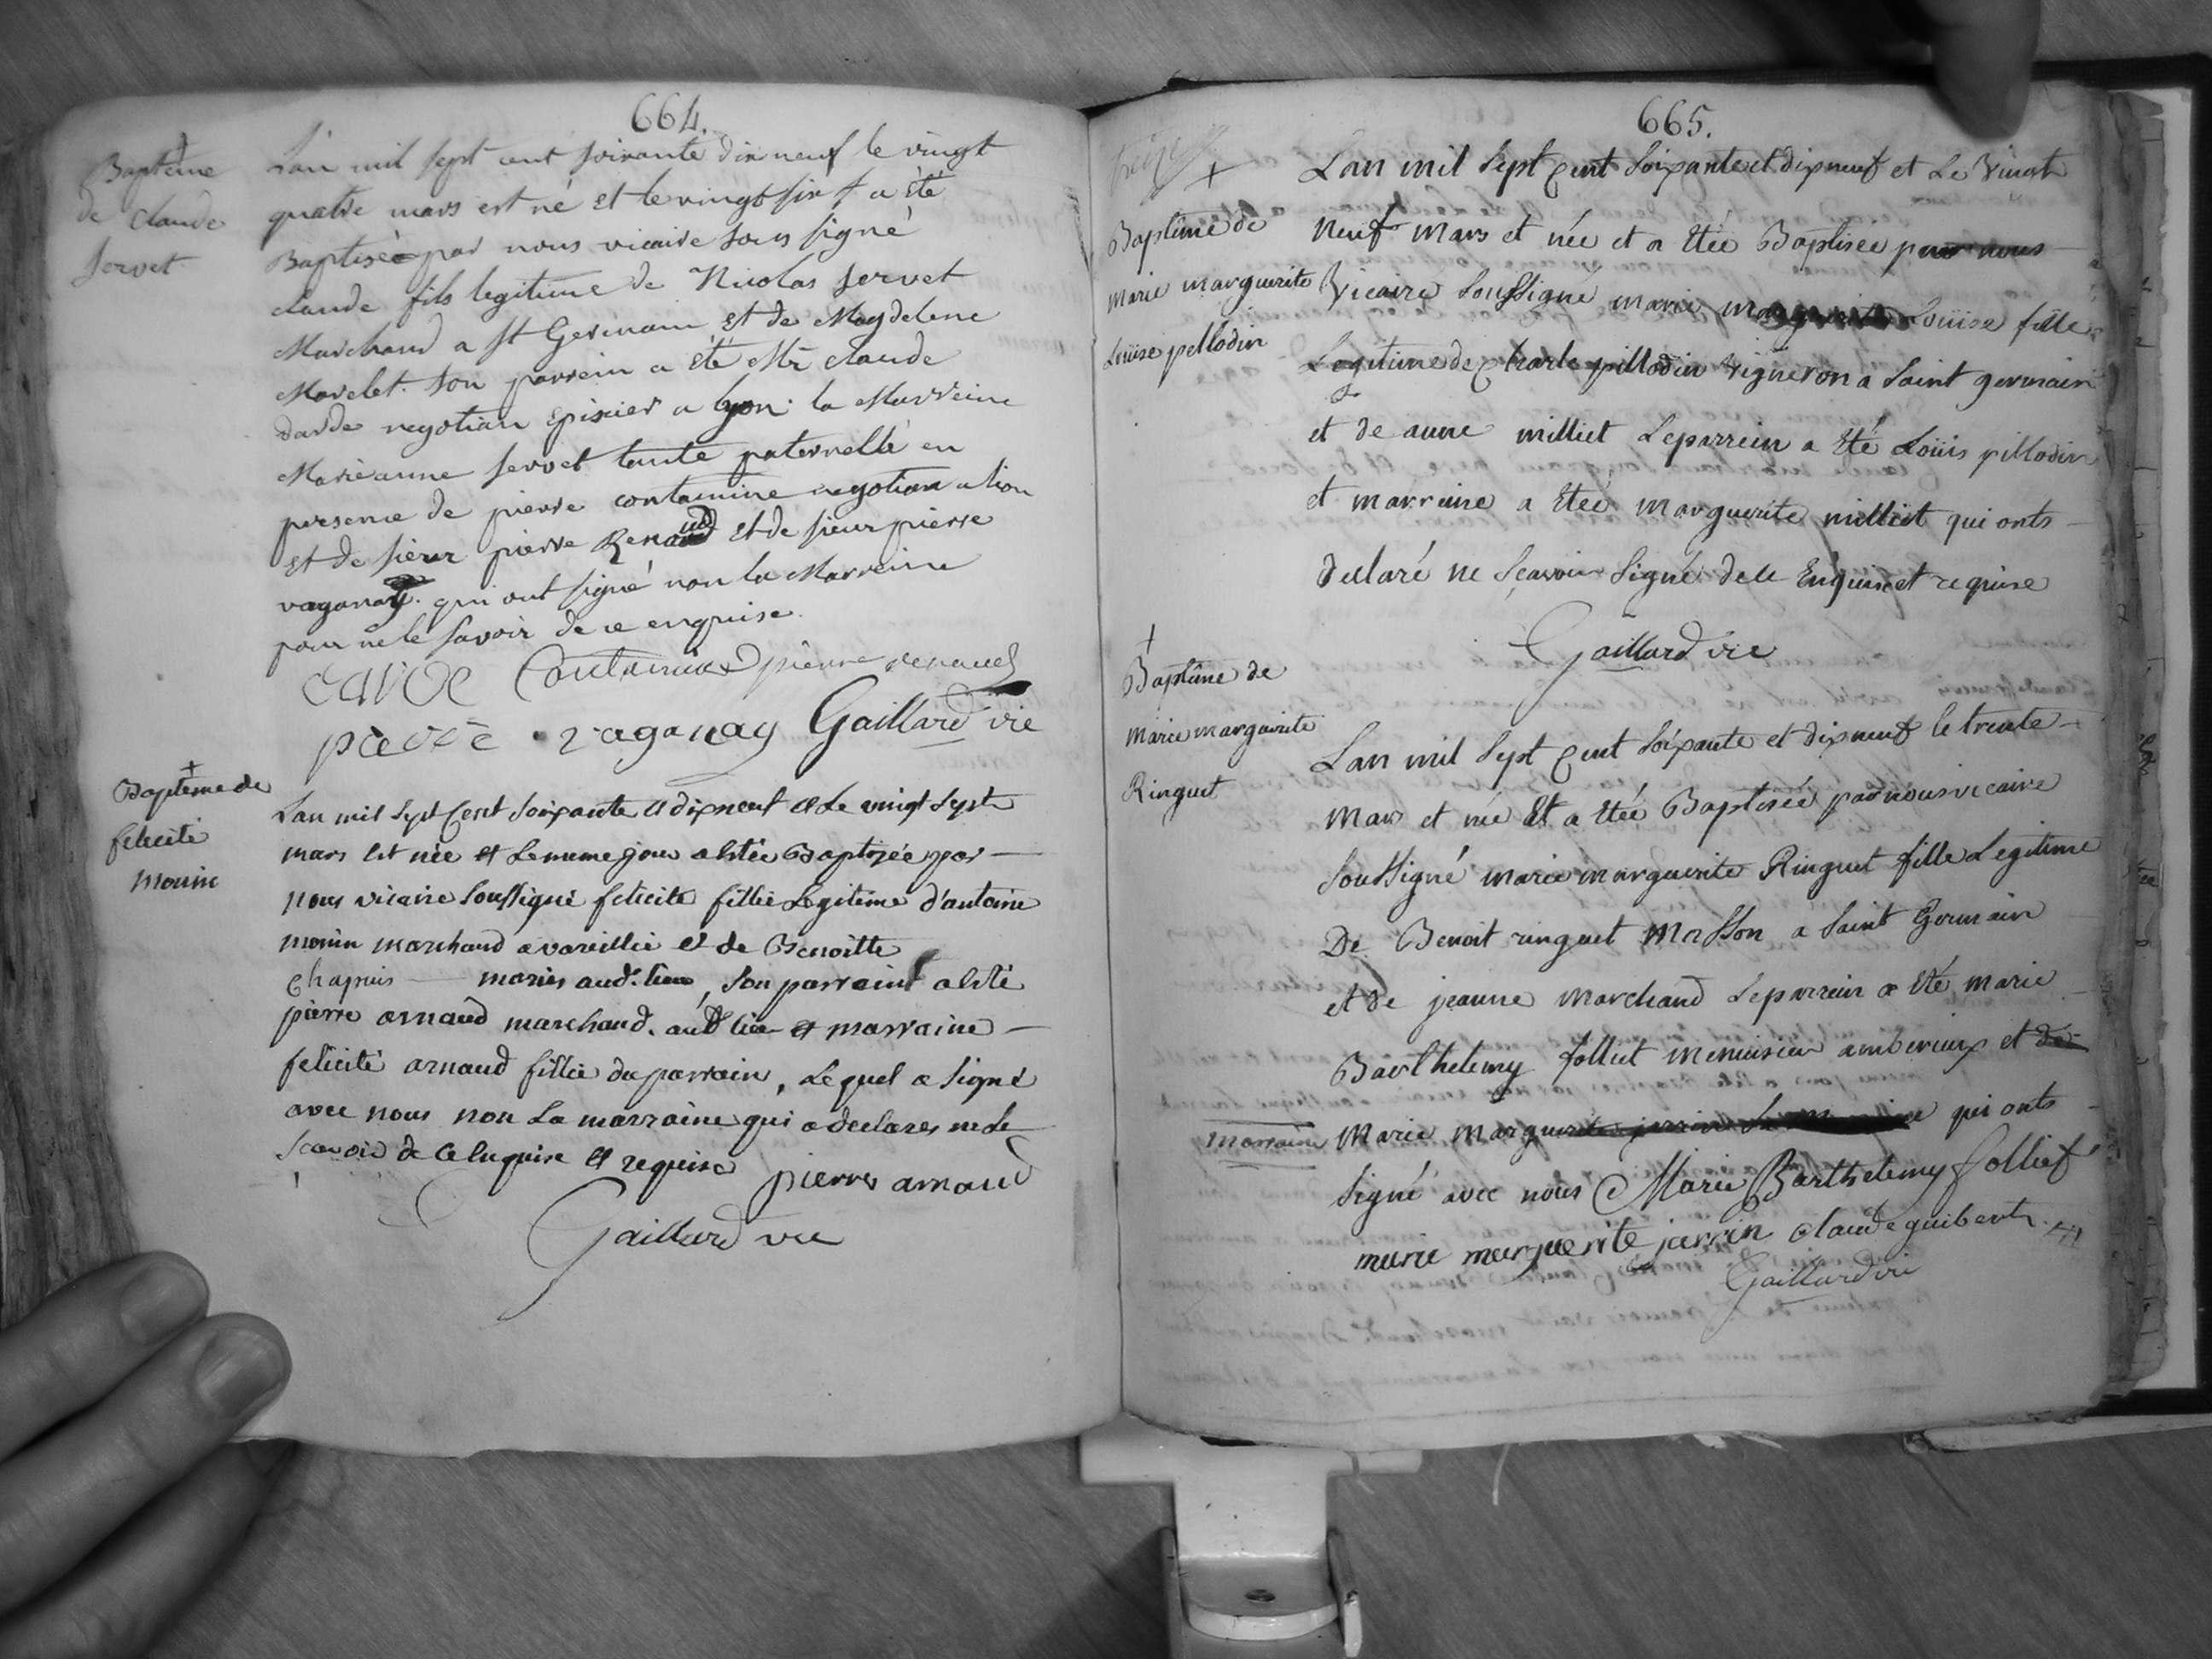 664.
Baptême
de Claude
servet
Lan mil sept cent soixante dix neuf le vingt
quatre mars est né et le vingt six a été
Baptisé par nous vicaire sous signé
claude fils legitime de Nicolas servet
Marchand a st Germain et de Magdelene
Marelet. son parrein a été Mr claude
darde negotian episier a lyon. la Marreine
Marieanne servet tante paternelle en
persence de pierre contamine negotian a lion
et de sieur pierre Renaud et de sieur pierre
vaganay. qui ont signé non la Marreine
pour ne le savoir de ce enquise.
pierre renaud
pierre vaganay Gaillard vic
Baptême de
felicité
monin
Lan mil sept Cent soixante et dixneuf et Le vingt sept
mars est née et Le meme jour a estée Baptizée par
nous vicaire soussigné felicite fillie Legitime d'antoine
monin marchand a vareillie et de Benoitte
Chapuis mariés aud. lieu, son parraint a esté
pierre arnaud marchand. aud lieu et marraine
felicité arnaud fillie du parrain, Lequel a signé
avec nous non La marraine qui a declares ne Le
scavoir de Ce Enquise et requise pierre arnaud
Gaillard vic
665.
Baptême de
marie marguerite
Louise pillodin
Lan mil sept Cent soixante et dixneuf et Le vingt
neuf mars et née et a étée Baptisée par nous
vicaire soussigné marie Louise fille
Legitime de Charle pillodin vigneron a saint germain
et de anne milliet Le parrein a été Loüis pillodin
et marraine a étée marguerite milliet qui onts
declaré ne scavoir signé de ce Enquis et requise
Gaillard vic
Baptême de
marie marguerite
Ringuet
Lan mil sept Cent soixante et dixneuf le trente
mars et née Et a étée Baptisée par nous vicaire
soussigné marie marguerite Ringuet fille Legitime
De Benoit ringuet masson a saint Germain
et de jeanne marchand Le parrein a été marie
Barthelemy folliet menuisier amberieux et de
marraine marie marguerite jarrin qui onts
signé avec nous Marie Barthelemy folliet
marie marguerite jarrin Claude guibert
Gaillard vic